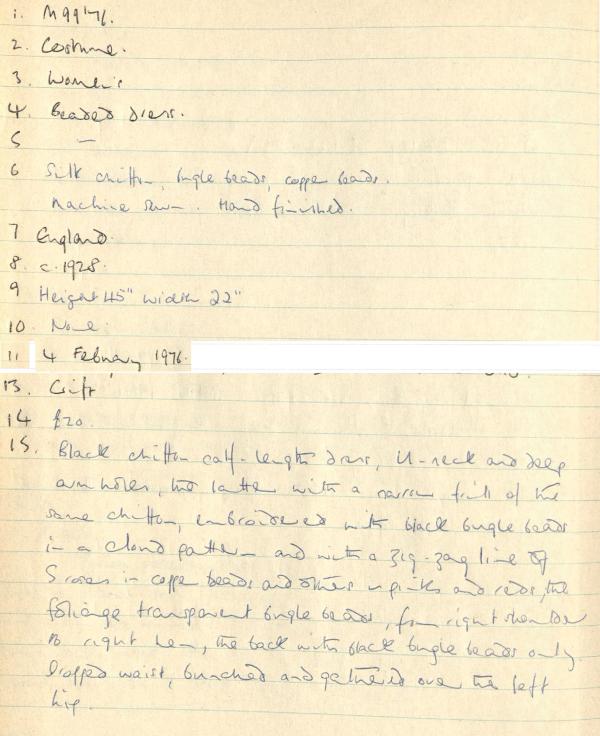 1. M99'76.
2. Costume.
3. Women's
4. Beaded dress.
5 —
6 Silk chiffon, bugle beads, copper beads.
Machine sewn. Hand finished.
7 England.
8. c.1928.
9 Height 45" width 22"
10. None.
11 4 February 1976.
13. Gift
14 £20.
15. Black chiffon calf-length dress, U-neck and deep
arm holes, the latter with a narrow frill of the
same chiffon, embroidered with black bugle beads
in a cloud pattern and with a zig-zag line of
5 roses in copper beads and others in pinks and reds, the
foliage transparent bugle beads, from right shoulder
to right hem, the back with black bugle beads only.
Dropped waist, bunched and gathered over the left
hip.